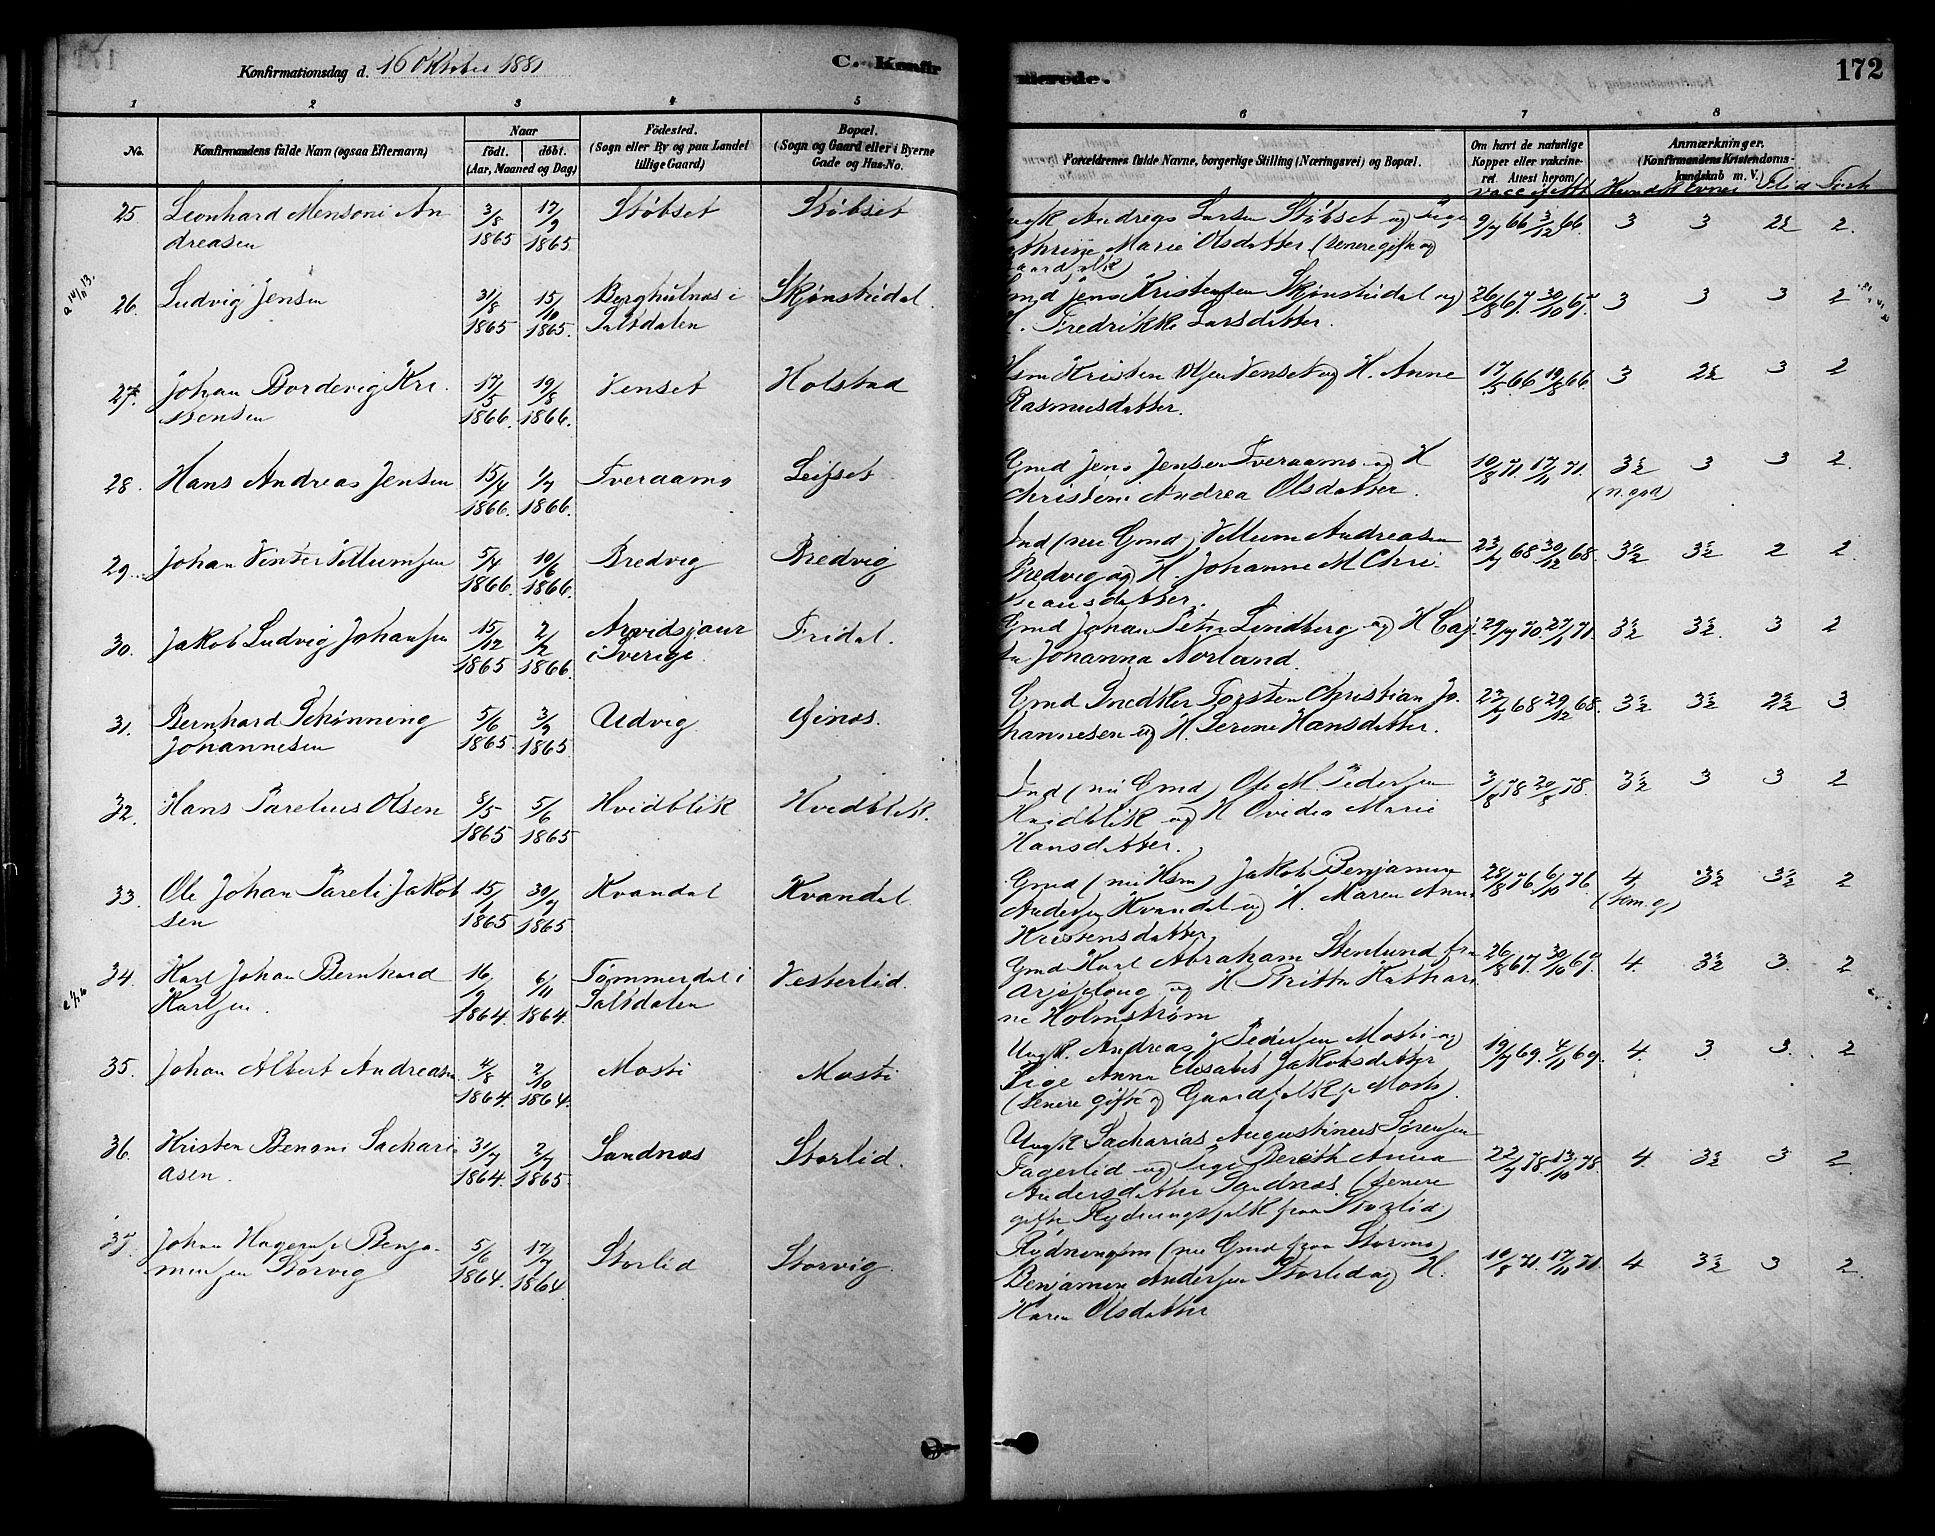 Konfirmationsdag d. 16 Oktober 1881
C. Konfir
merede.
172
1 2 3 4 5 6 7 8
No. Konfirmandens fulde Navn (ogsaa Efternavn)
Naar
födt. döbt.
(Aar, Maaned og Dag.)
Födested.
(Sogn eller By og paa Landet
tillige Gaard)
Bopæl.
(Sogn og Gaard eller i Byerne
Gade og Hus-No.
Forældrenes fulde Navne, borgerlige Stilling (Næringsvei) og Bopæl.
Om havt de naturlige
Kopper eller vakcine-
ret. Attest herom
Anmærkninger.
(Konfirmandens Kristendoms-
kundskab m. V.)
25. Leonhard Mensoni An
dreasen
3/8 1865 17/9 1865 Støbset Støbset
Andreas Larsen Støbset og Pige
Marie Olsdatter (senere gifte og
9/7 66 3/12 66. 3 3 2½ 2.
26. Ludvig Jensen
31/8 1865 15/10 1865. Berghulnes i
Saltdalen
Skjønstudal.
Gmd Jens Kristensen Skjønstudal og
H. Fredrikke Larsdatter.
26/8 67. 30/10 67. 3 3 3 2
27. Johan Bordevig Kri
stensen
17/5 1866. 19/8 1866. Venset Holstad
Hsm Kristen Venset og H. Anne
Rasmusdatter.
17/5 66 19/8 66. 3 2½ 3 2
28. Hans Andreas Jensen
15/4 1866. 1/7 1866. Tveraamo Leifset
Gmd Jens Jensen Tveraamo og H
Christine Andrea Olsdatter.
10/8 71. 17/11 71. 3½ 3 3 2.
(n. god)
29. Johan Vinter Villumsen
5/4 1866. 10/6 1866. Bredvig Bredvig
Ind (nu Gmd) Villum Andreasen
Bredvig og H. Johanne M Chri
stiansdatter.
23/7 68 30/12 68. 3½ 3½ 2 2.
30. Jakob Ludvig Johansen
15/12 1865 2/2 1866. Arvidsjaur
i Sverige.
Fridal.
Gmd Johan Peter Lindberg og H Caj
sa Johanna Norland.
29/7 70. 27/1 71. 3½ 3½. 3 2
31. Bernhard Schønning
Johannesen
5/6 1865. 3/9 1865 Udvig Øines.
Gmd Snedker Torsten Christian Jo
hannesen og H. Serine Hansdatter.
23/7 68 29/12 68. 3½ 3½ 2½ 3.
32. Hans Parelius Olsen
8/5 1865 5/6 1865 Hvidblik Hvidblik.
Ind (nu Gmd) Ole M Pedersen
Hvidblik og H Ovidia Marie
Hansdatter.
3/8 78 20/8 78. 3½ 3 3 2
33. Ole Johan Pareli Jakob
sen
15/1 1865 30/7 1865 Kvandal Kvandal.
Gmd (nu Hsm) Jakob Benjamin
Andersen Kvandal og H. Maren Anna
Kristensdatter
28/8 76 6/10 76. 4 3½ 3½ 2
34. Karl Johan Bernhard
Karlsen.
16/9 1864. 6/11 1864. Tømmerdal i
Saltdalen
Vesterlid.
Gmd Karl Abraham Stenlund fra
Arjeploug og H Britta Kathari
na Holmstrøm
26/8 67. 30/10 67. 4. 3½ 3. 2
35. Johan Albert Andreasen
4/8 1864. 2/10 1864. Mosti Mosti
Ungk. Andreas Pedersen Mosti og
Pige Anna Elisabet Jakobsdatter
(senere gifte og Gaardfolk p Mosti)
19/7 69. 4/11 69. 4. 3. 3. 2
36. Kristen Benoni Sachari
asen.
31/7 1864. 2/7 1865 Sandnes Storlid.
Ungk Sacharias Augustinus Sørensen
Fagerlid og Pige Bereth Anna
Andersdatter Sandnes. (senere
gifte Rydningsfolk paa Storlid)
22/7 78. 13/10 78. 4. 3½ 3 2
37. Johan Hagerup Benja-
minsen Storvig
5/6 1864. 17/7 1864. Storlid Storvig.
Rydningsm (nu Gmd paa Stormo)
Benjamin Andersen Storlid og H.
Karen Olsdatter
10/8 71. 17/11 71. 4 3½ 3 2.